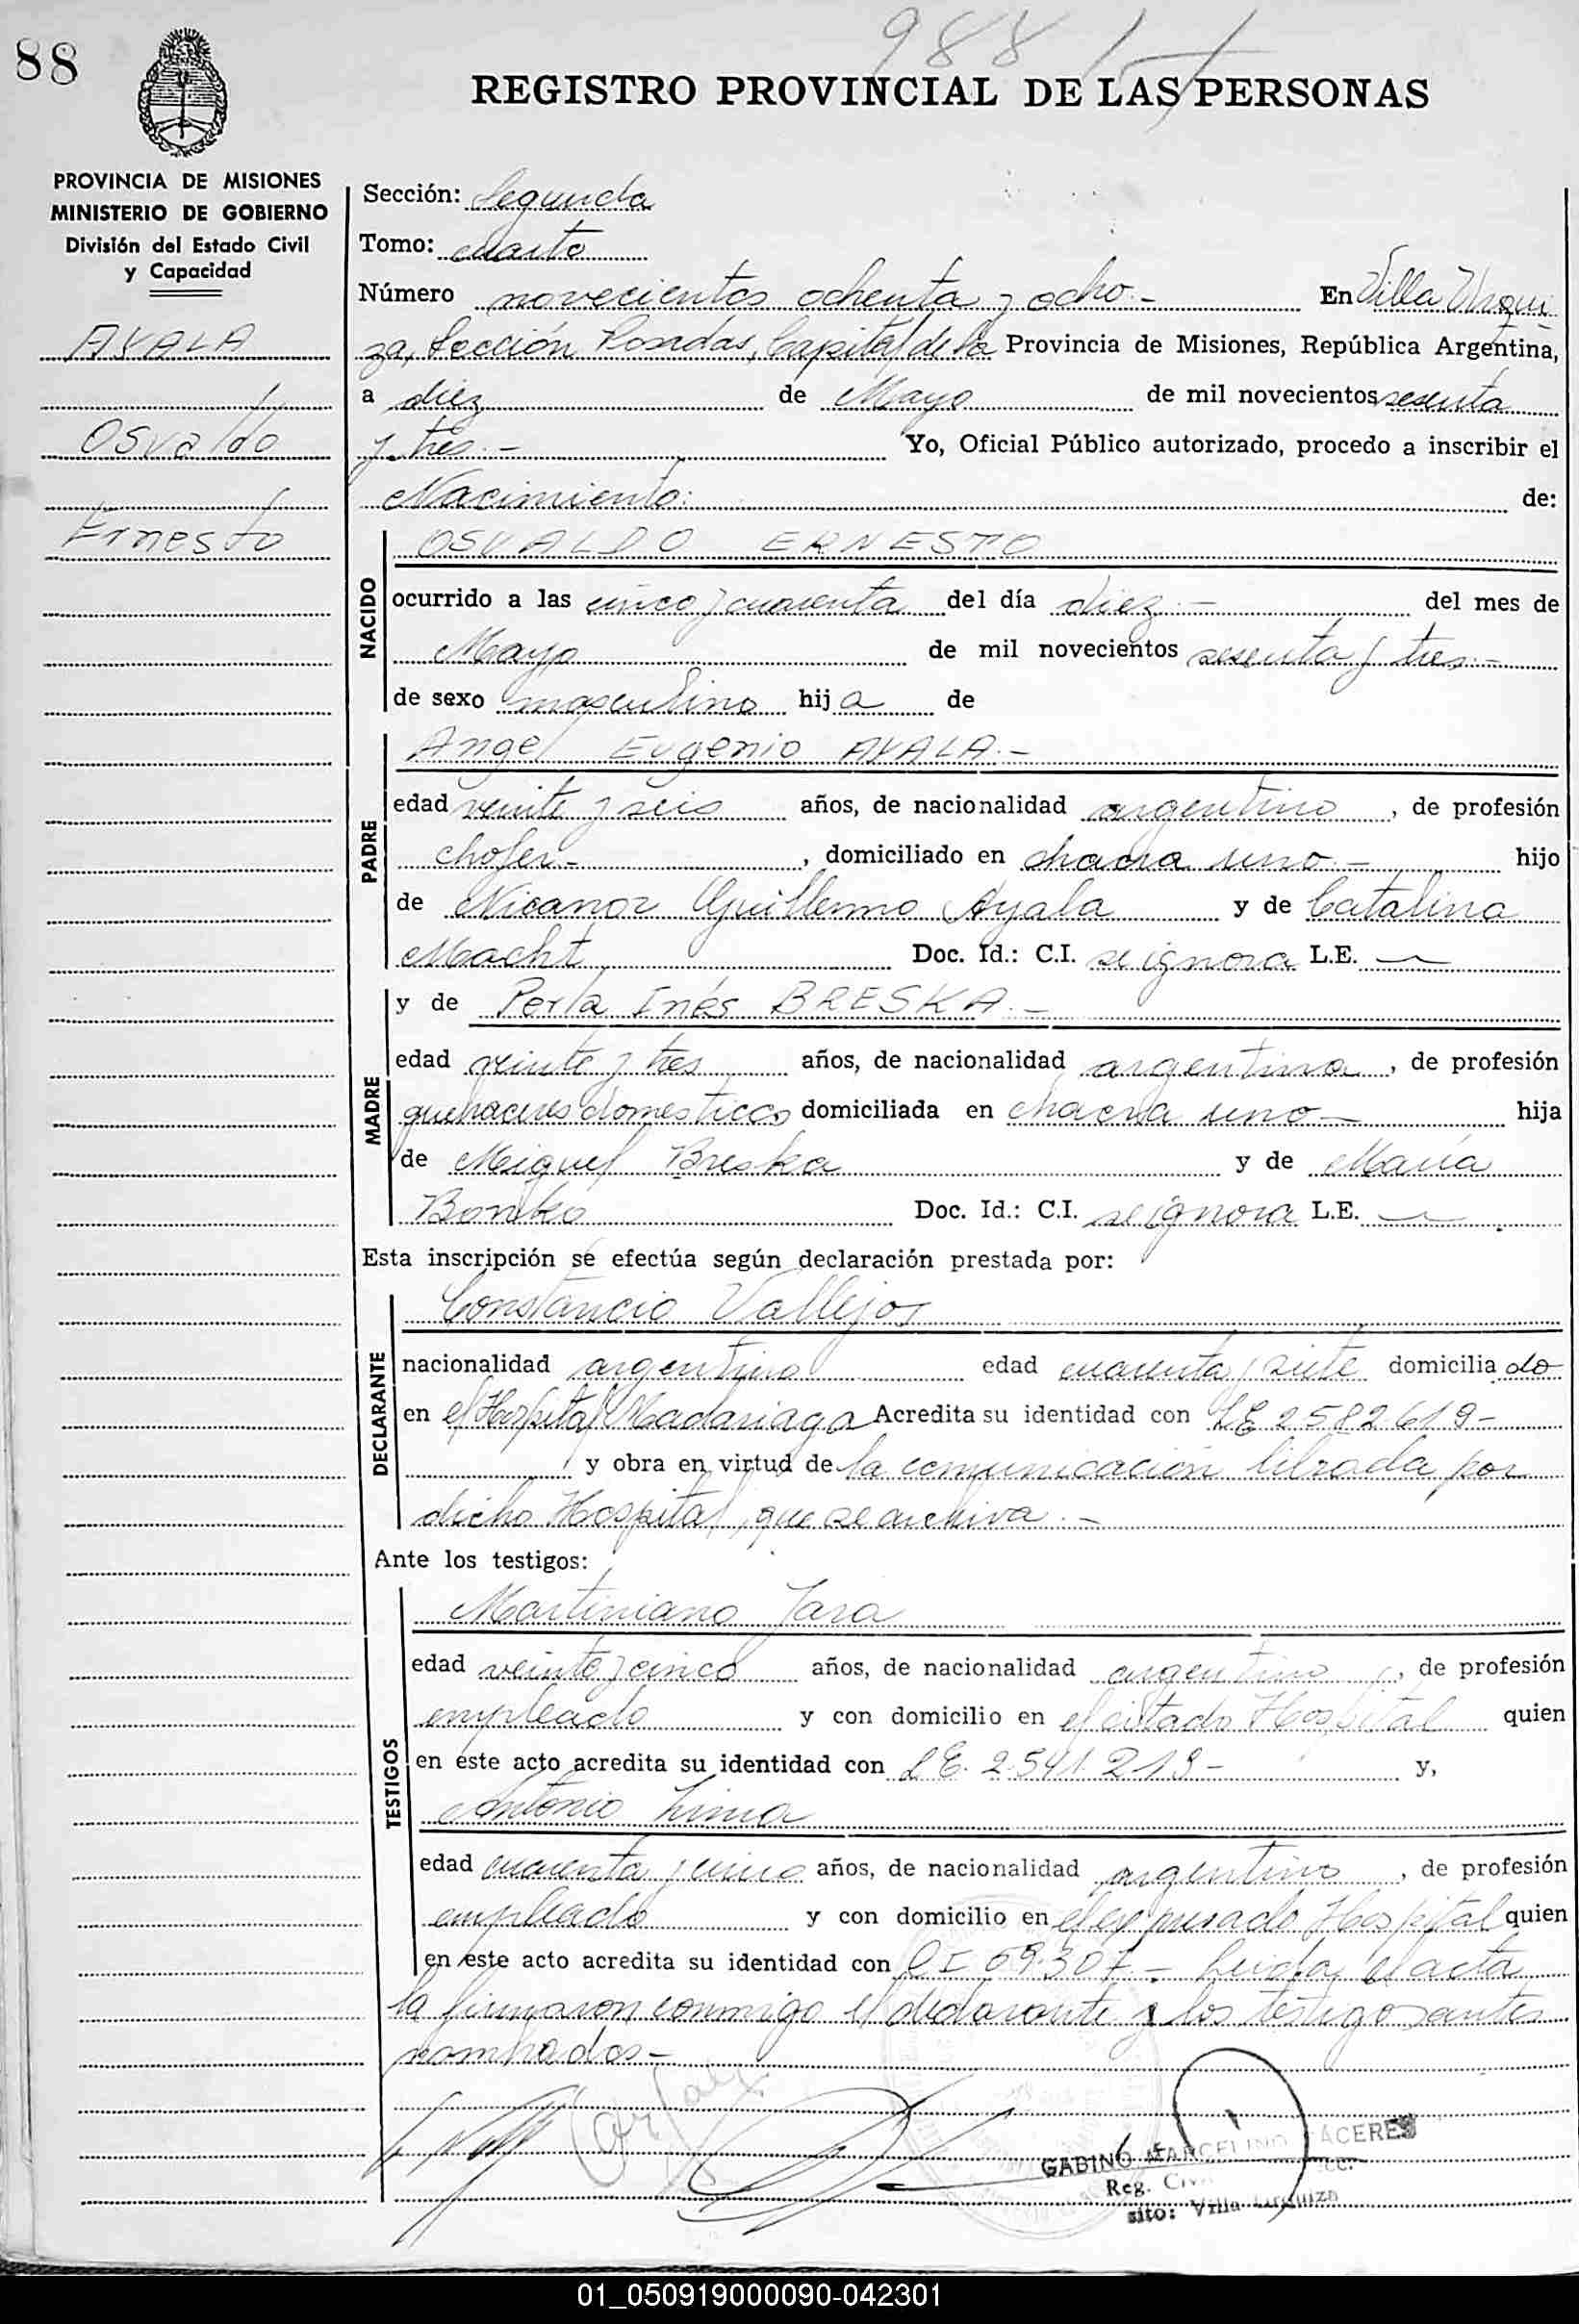 988 / T
88
REGISTRO PROVINCIAL DE LAS PERSONAS
PROVINCIA DE MISIONES
MINISTERIO DE GOBIERNO
División del Estado Civil
y Capacidad
AYALA
Osvaldo
Ernesto
Sección: Segunda
Tomo: cuarto
Número novecientos ochenta y ocho.- En Villa Urqui
za, Sección Posadas, Capital de la Provincia de Misiones, República Argentina,
a diez de Mayo de mil novecientos sesenta
y tres.- Yo, Oficial Público autorizado, procedo a inscribir el
Nacimiento: de:
NACIDO
OSVALDO ERNESTO
ocurrido a las cinco y cuarenta del día diez.- del mes de
Mayo de mil novecientos sesenta y tres.-
de sexo masculino hija de
PADRE
Angel Eugenio AYALA.-
edad veinte y seis años, de nacionalidad argentino, de profesión
chofer-, domiciliado en chacra uno.- hijo
de Nicanor Guillermo Ayala y de Catalina
Macht Doc. Id.: C.I. se ignora L.E. —
MADRE
y de Perla Inés BRESKA.-
edad veinte y tres años, de nacionalidad argentina, de profesión
quehaceres domesticos domiciliada en chacra uno- hija
de Miguel Breska y de María
Bonko Doc. Id.: C.I. se ignora L.E. —
Esta inscripción se efectúa según declaración prestada por:
DECLARANTE
Constancio Vallejos
nacionalidad argentino edad cuarenta y siete domiciliado
en el Hospital Madariaga Acredita su identidad con LE 2582619-
y obra en virtud de la comunicación librada por
dicho Hospital, que se archiva.-
Ante los testigos:
TESTIGOS
Martiniano Jara
edad veinte y cinco años, de nacionalidad argentino, de profesión
empleado y con domicilio en el citado Hospital quien
en este acto acredita su identidad con L E. 2.541.219- y,
Antonio Lima
edad cuarenta y cinco años, de nacionalidad argentino, de profesión
empleado y con domicilio en el expresado Hospital quien
en este acto acredita su identidad con C I 69.307.- Leída el acta
la firmaron conmigo el declarante y los testigos antes
nombrados-
GABINO MARCELINO CACERES
Reg. Civ.
sito: Villa Urquiza
01_050919000090-042301